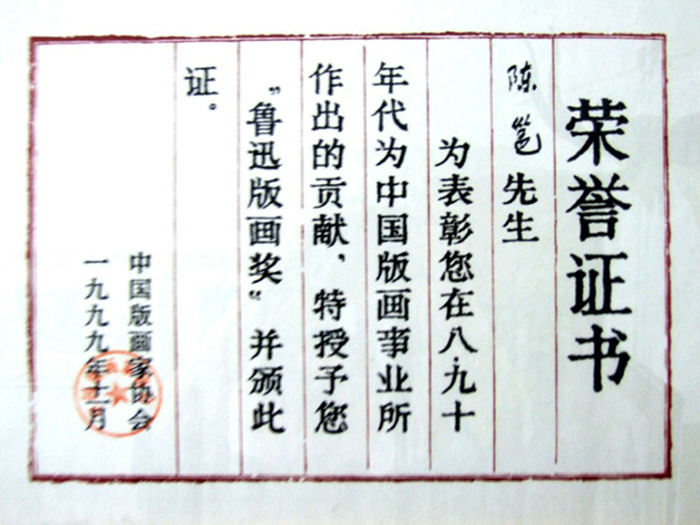 荣誉证书
陈邕先生
为表彰您在八.九十
年代为中国版画事业所
作出的贡献、特授予您
“鲁迅版画奖”并颁此
证。
中国版画家协会
一九九九年十一月